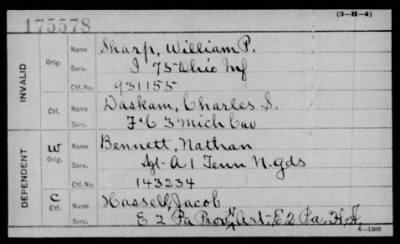 (3-H-4)
175578
INVALID
Orig.
Name Sharp, William P.
Serv. I 75 Ohio Inf
Ctf. No. 931155
Ctf.
Name Daskam, Charles S.
Serv. F & C 3 Mich Cav
DEPENDENT
W
Orig.
Name Bennett, Nathan
Serv. Sgt-A 1 Tenn N. gds
Ctf. No. 143234
C
Ctf.
Name Hassell, Jacob
Serv. E 2 Pa Prov Art-E 2 Pa. H.A.